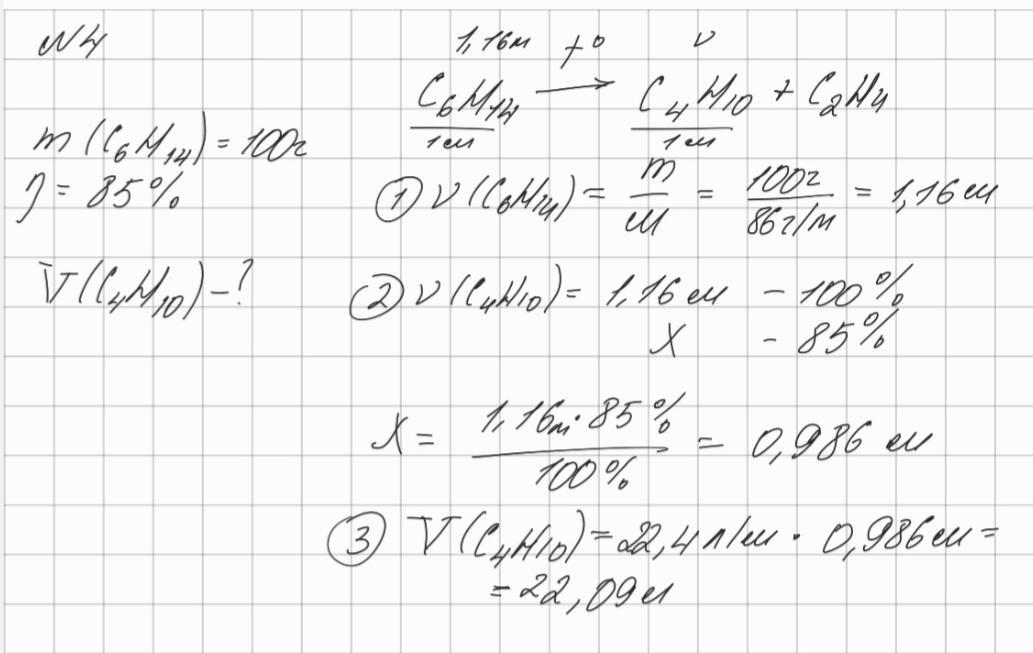 №4
m(C₆H₁₄) = 100г
η = 85%
V(C₄H₁₀) – ?
1,16м t° ν
C₆H₁₄ → C₄H₁₀ + C₂H₄
1м 1м
① ν(C₆H₁₄) = m/M = 100г/86г/м = 1,16м
② ν(C₄H₁₀) = 1,16м – 100%
X – 85%
X = 1,16м·85%/100% = 0,986 м
③ V(C₄H₁₀) = 22,4л/м · 0,986м =
= 22,09л